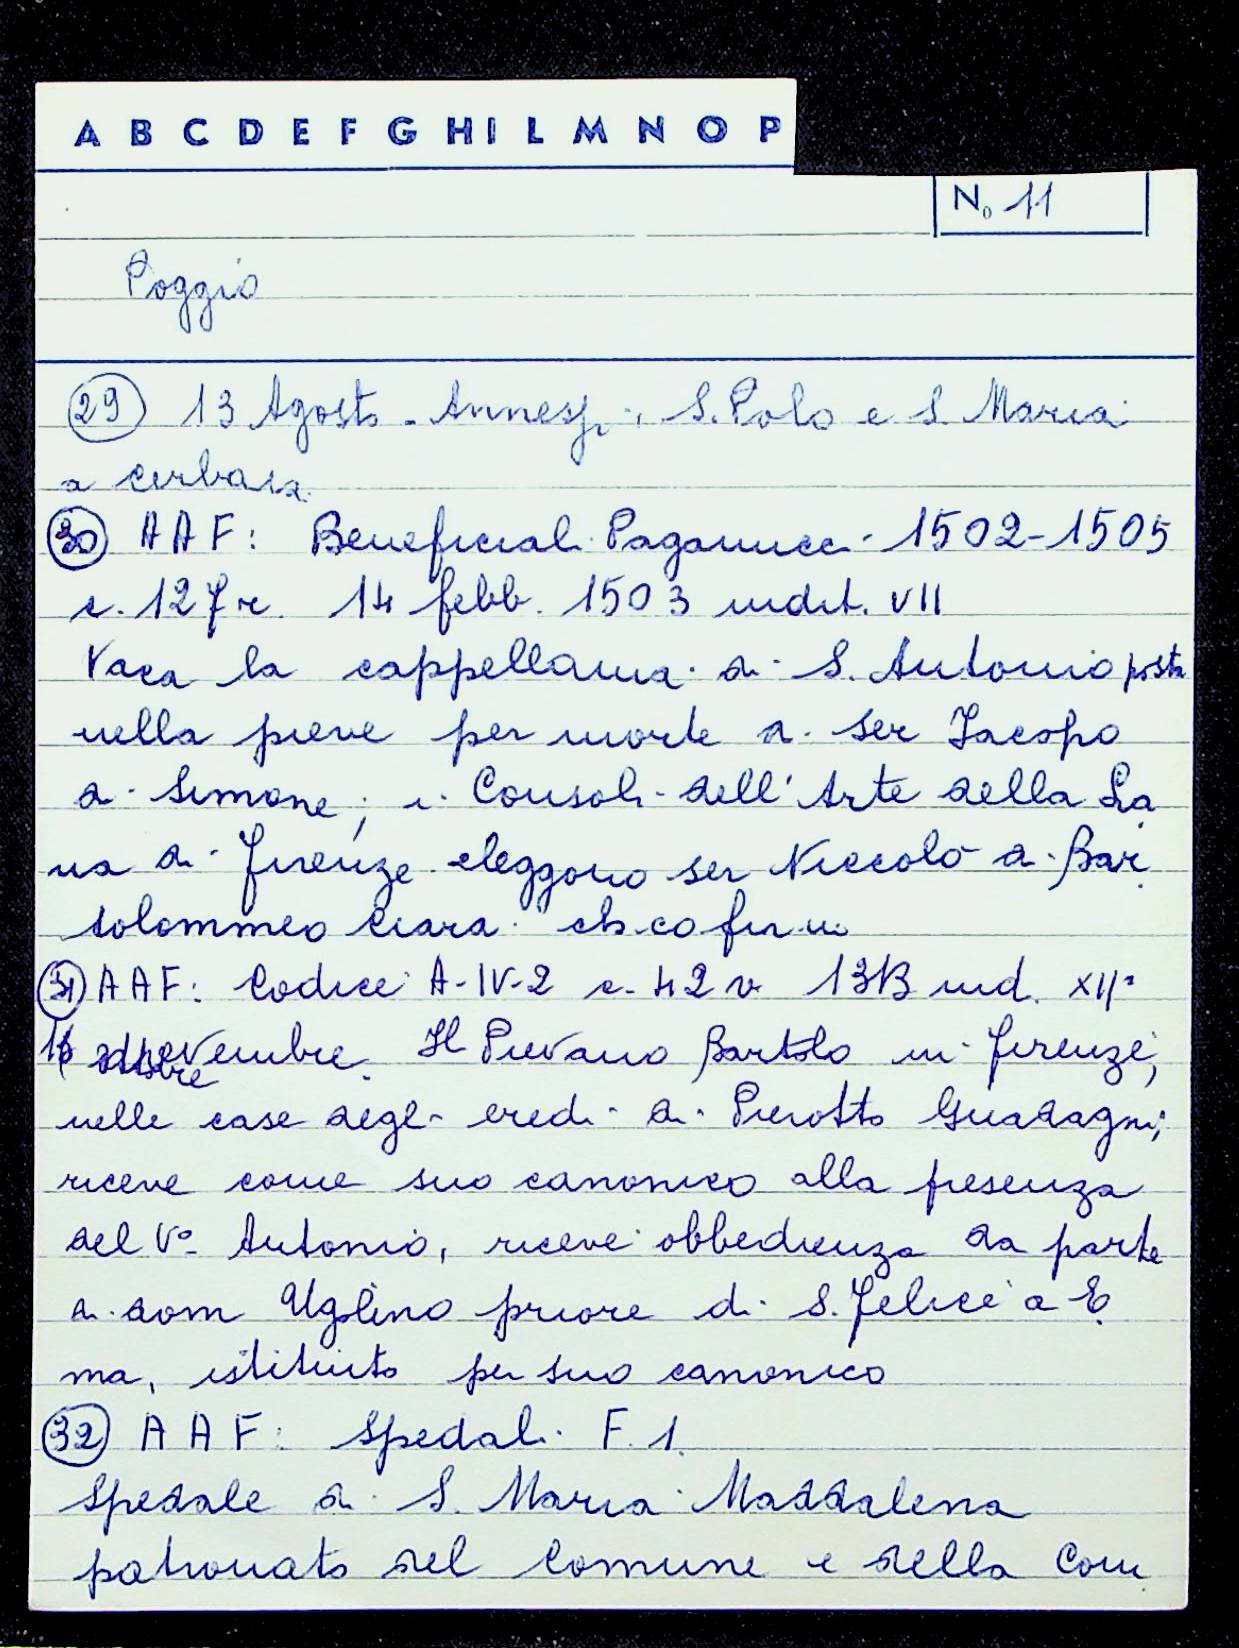 A B C D E F G H I L M N O P
No 11
Poggio
29 13 Agosto - Anness. S. Polo e S. Maria
a cerbaia
30 AAF: Beneficiali Paganucci 1502-1505
c. 127r. 14 febb. 1503 indit. VII
Vaca la cappellania di S. Antonio posta
nella pieve per morte di ser Jacopo
di Simone; i Consoli dell'Arte della La
na di Firenze eleggono ser Niccolò di Bar
tolommeo
31 AAF: Codice A-IV-2 c. 42v 1313 ind. XIIa
novembre. Il Pievano Bartolo in Firenze,
ottobre
nelle case degli eredi di Pierotto Guadagni;
riceve come suo canonico alla presenza
del Vo Antonio, riceve obbedienza da parte
di dom Ugolino priore di S. Felice a E
ma, istituito per suo canonico
32 AAF: Spedali F. 1.
Spedale di S. Maria Maddalena
patronato del Comune e della Com